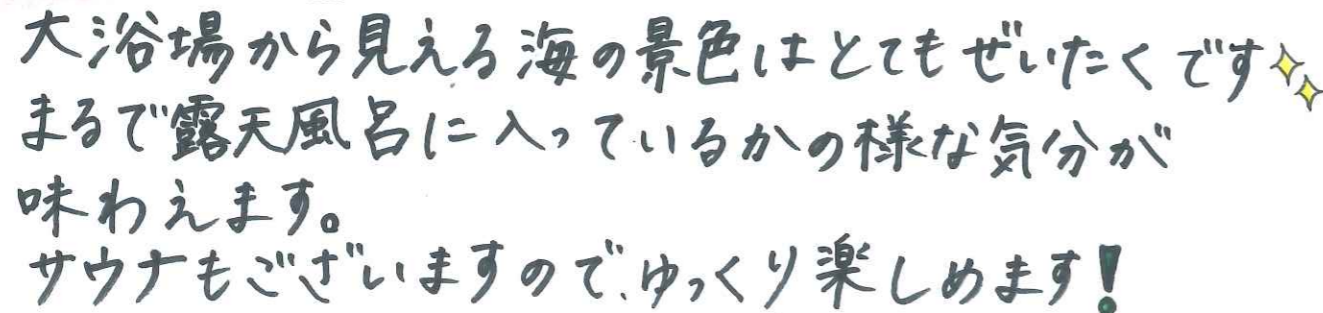 大浴場から見える海の景色はとてもぜいたくです✨
まるで露天風呂に入っているかの様な気分が
味わえます。
サウナもございますので、ゆっくり楽しめます！